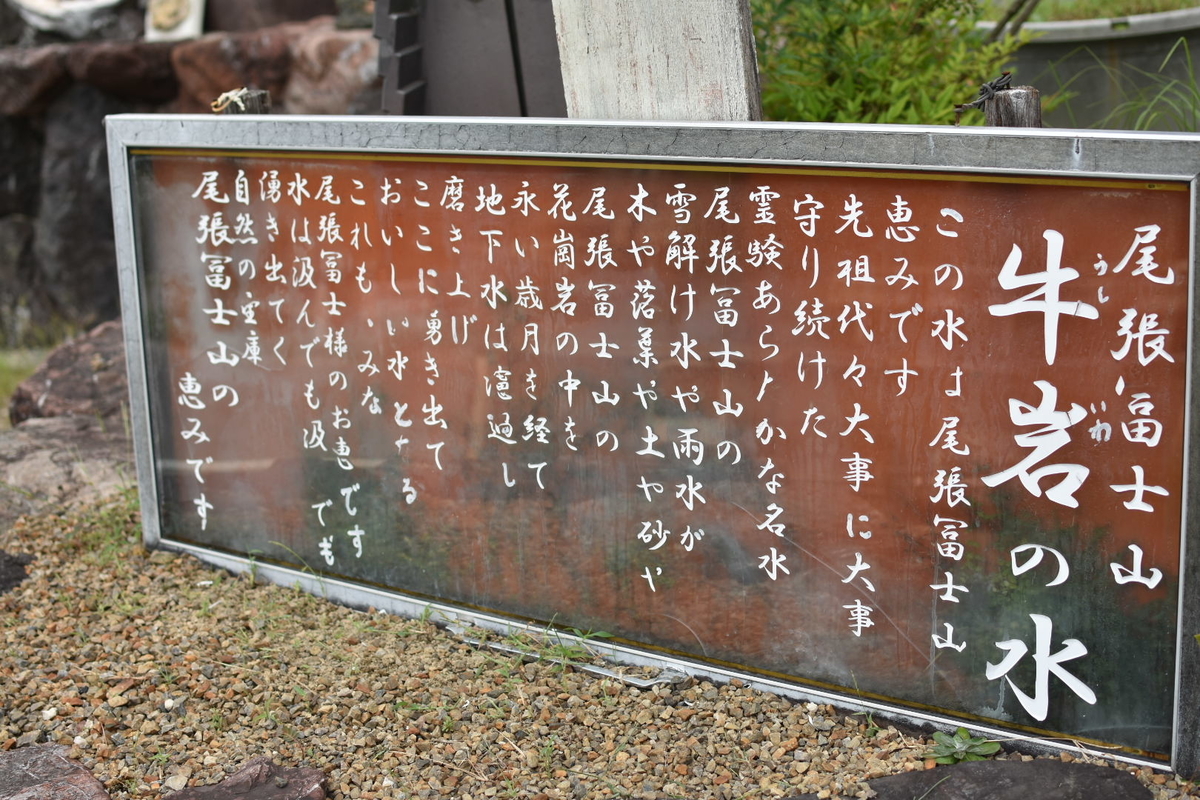 尾張富士山
うし いわ
牛岩の水
この水は尾張冨士山
恵みです
先祖代々大事に大事
守り続けた
霊験あらたかな名水
尾張冨士山の
雪解け水や雨水が
木や落葉や土や砂や
尾張冨士山の
花崗岩の中を
永い歳月を経て
地下水は濾過し
磨き上げ
ここに勇き出て
おいしい水となる
これも、みな
尾張冨士様のお恵です
水は汲んでも汲 でも
湧き出てく
自然の宝庫
尾張冨士山の
恵みです